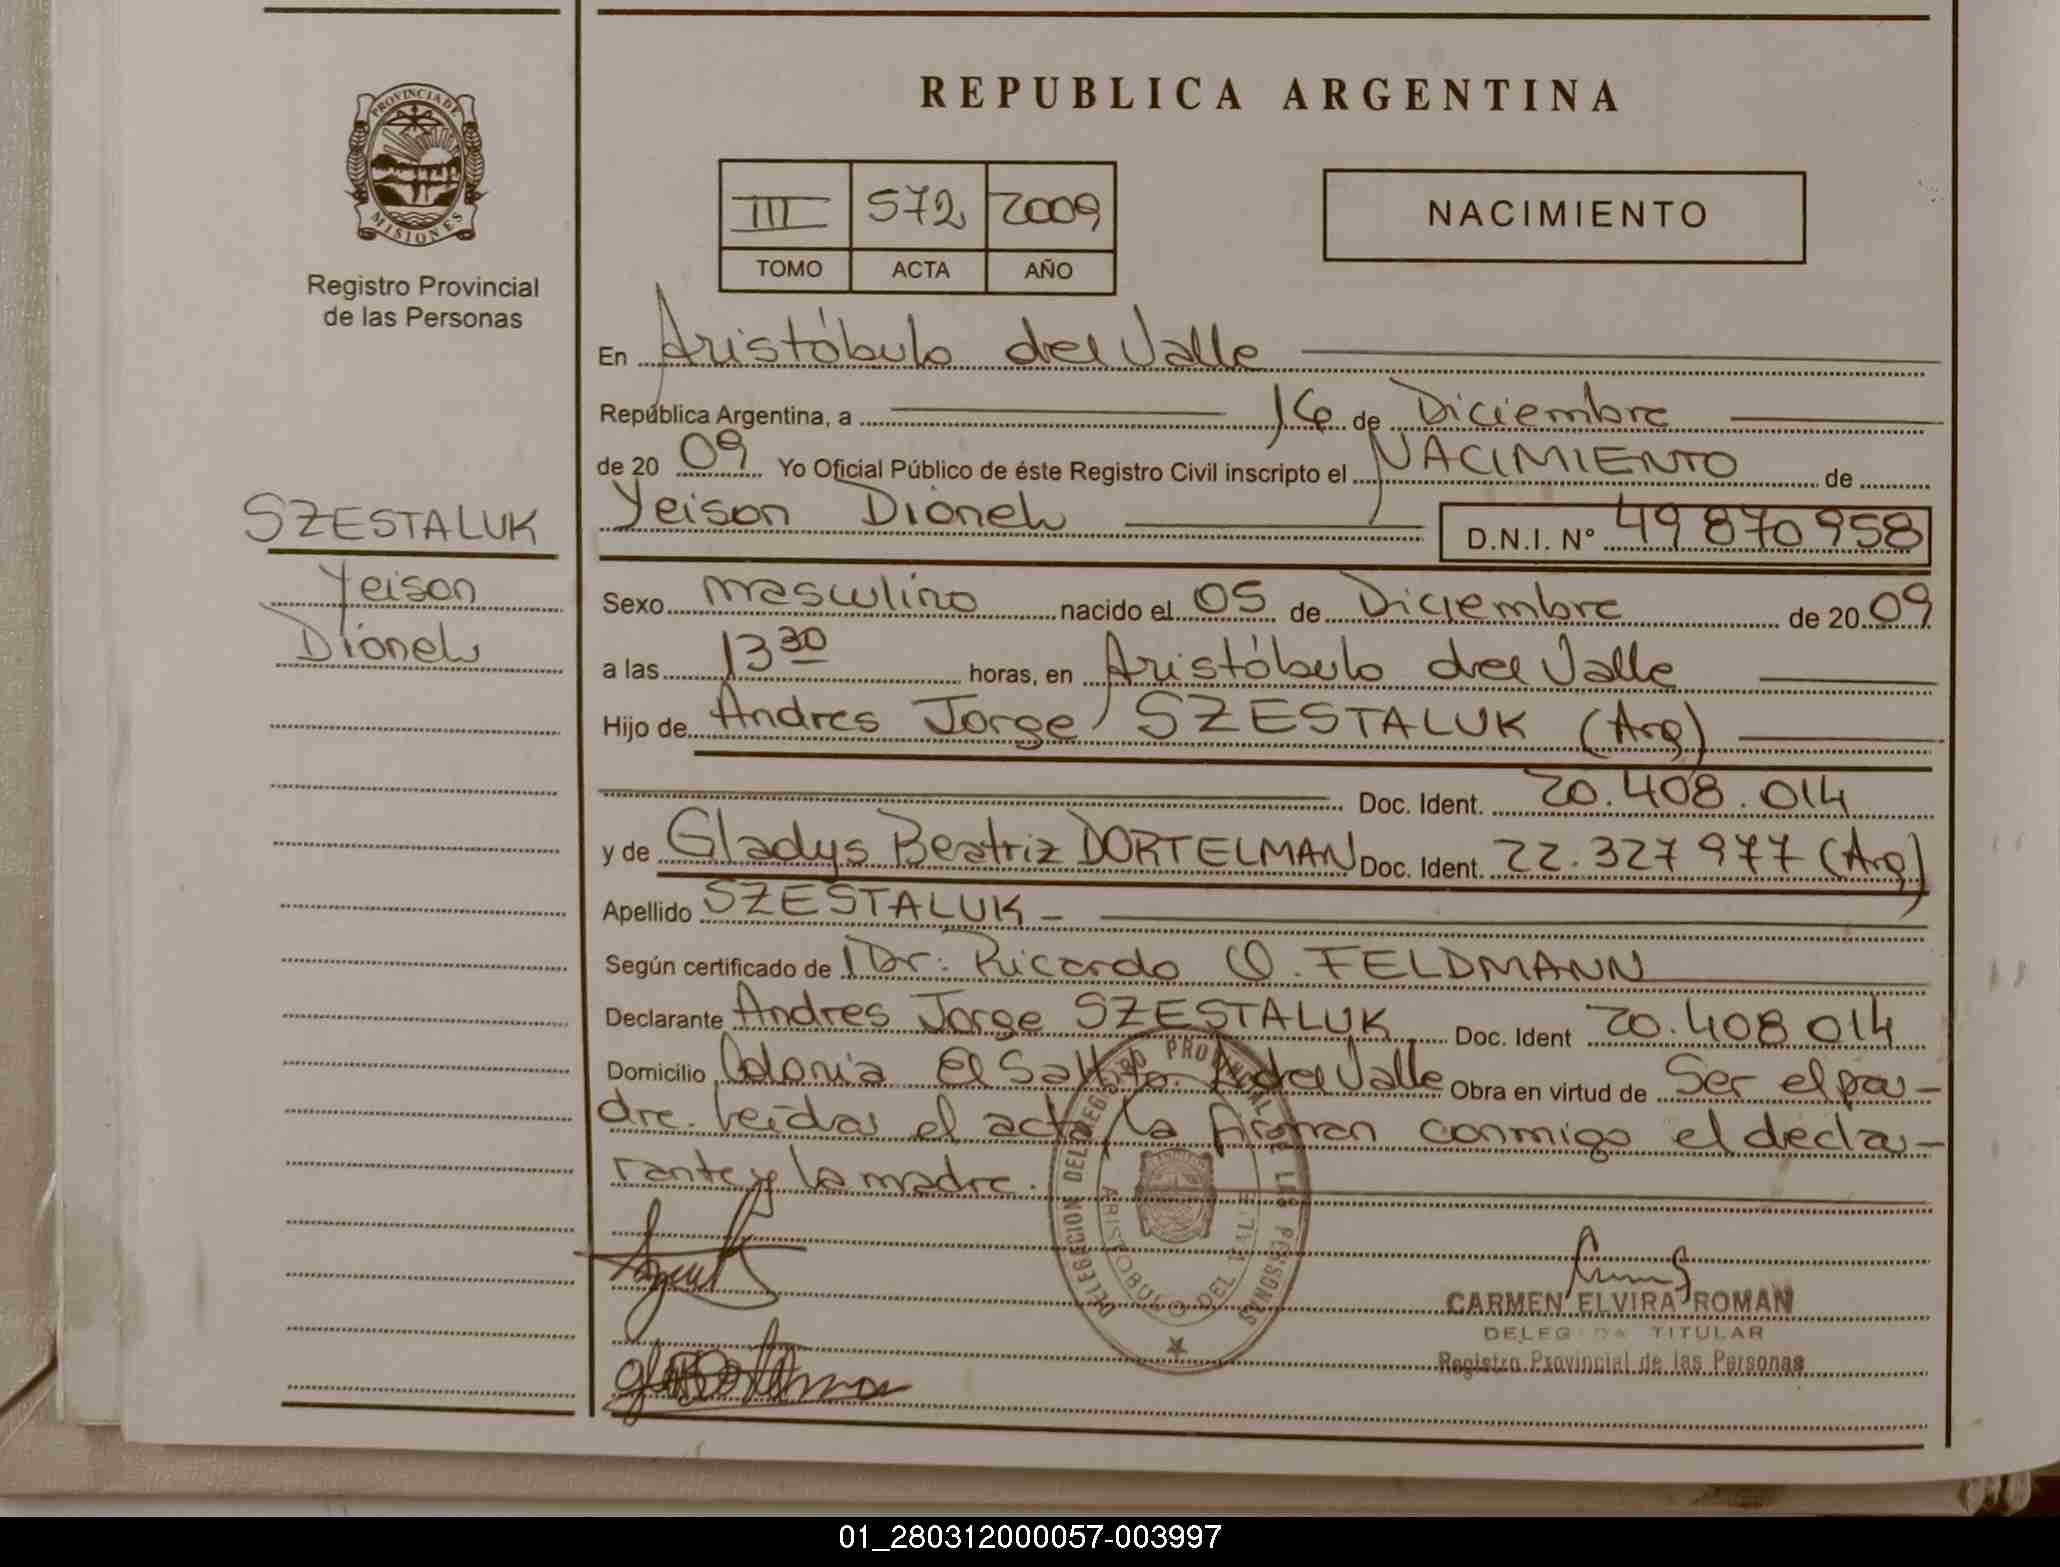 PROVINCIA DE
MISIONES
Registro Provincial
de las Personas
SZESTALUK
Yeison
Dionel
REPUBLICA ARGENTINA
III 572 2009
TOMO ACTA AÑO
NACIMIENTO
En Aristóbulo del Valle
República Argentina, a 16 de Diciembre
de 2009 Yo Oficial Público de éste Registro Civil inscripto el NACIMIENTO de
Yeison Dionel D.N.I. N° 49 870 958
Sexo masculino nacido el 05 de Diciembre de 2009
a las 13 30 horas, en Aristóbulo del Valle
Hijo de Andres Jorge SZESTALUK (Arg)
Doc. Ident. 20.408.014
y de Gladys Beatriz DORTELMAN Doc. Ident. 22.327 977 (Arg)
Apellido SZESTALUK
Según certificado de Dr. Ricardo O. FELDMANN
Declarante Andres Jorge SZESTALUK Doc. Ident 20.408 014
Domicilio Colonia El Saltito. A. del Valle Obra en virtud de Ser el pa-
dre. Leida el acta, la firman conmigo el decla-
rante y la madre.
DELEGACION DEL REGISTRO PROVINCIAL DE LAS PERSONAS
ARISTOBULO DEL VALLE
CARMEN ELVIRA ROMAN
DELEGADA TITULAR
Registro Provincial de las Personas
01_280312000057-003997